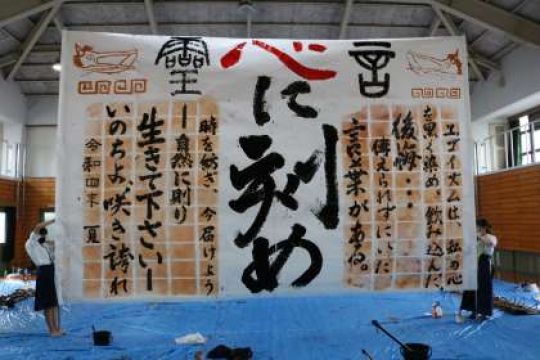 言
靈
心に刻め
エゴイズムは、私の心
を黒く染め、飲み込んだ。
後悔・・・
伝えられずにいた
言の葉がある。
時を紡ぎ、今届けよう
ー自然に則り
生きて下さいー
いのちよ、咲き誇れ
令和四年 夏